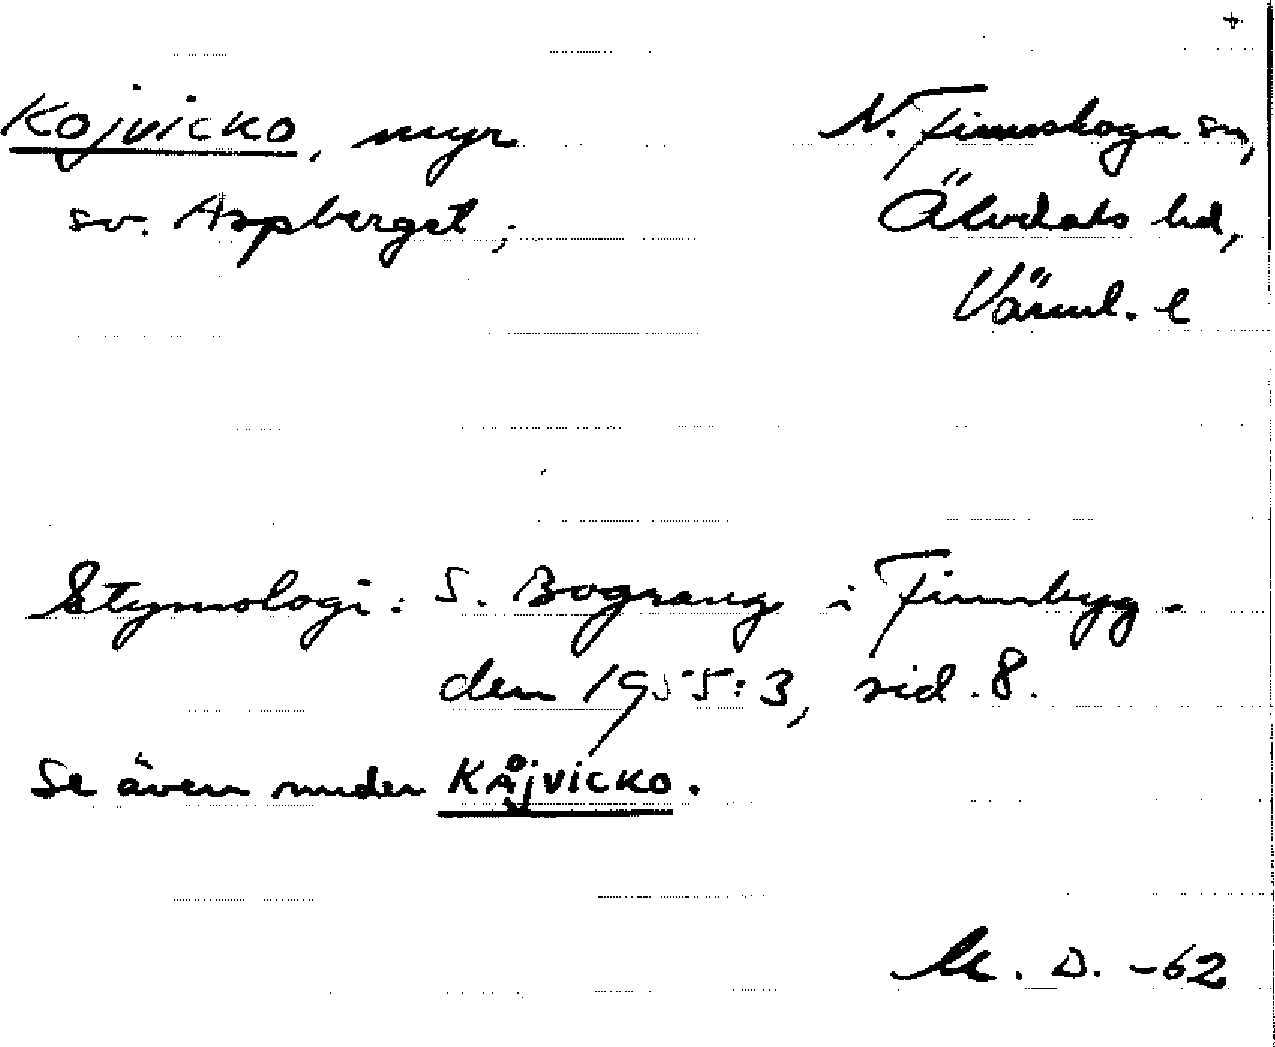 Kojvicko, myr N. Finnskoga sn,
sv. Aspberget; Älvdals hd,
Värml. l
Etymologi: S. Bograng i Finnbyg-
den 1955:3, sid. 8.
Se även under KÅJVICKO.
M. D. -62